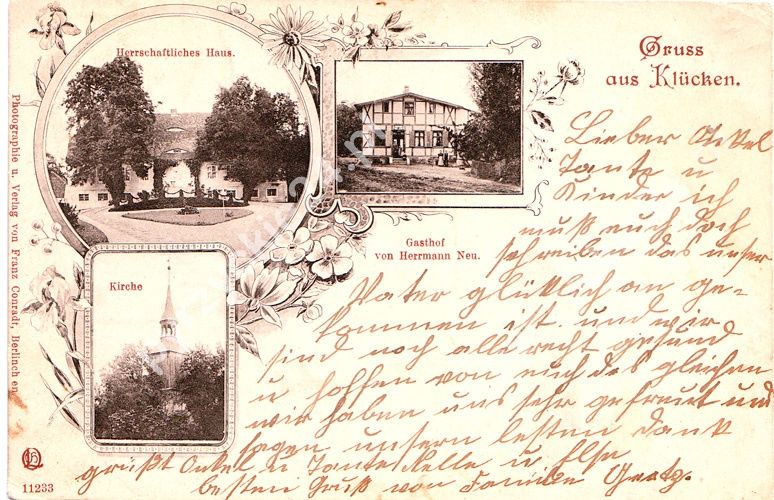 Gruss
aus Klücken.
Herrschaftliches Haus.
Gasthof
von Herrmann Neu.
Kirche
Photographie u. Verlag von Franz Conradt, Berlinchen
11233
Lieber Onkel
Tante u
Kinder ich
muß euch doch
schreiben das unser
Vater glüklich an ge-
kommen ist. und wir
sind noch alle recht gesund
u hoffen von euch des gleichen
wir haben uns sehr gefreut und
sagen unsern besten dank
grüßt Onkel u Tante u Ilse
besten Gruß von Familie